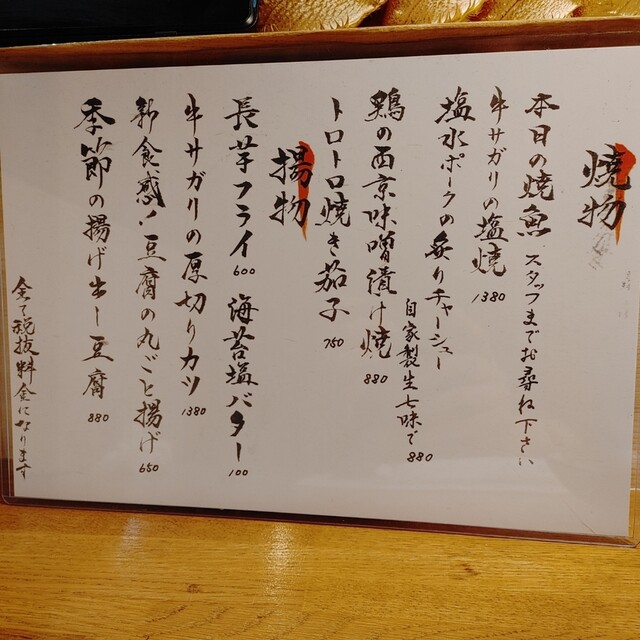 焼物
本日の焼魚 スタッフまでお尋ね下さい
牛サガリの塩焼 1380
塩水ポークの炙りチャーシュー
自家製生七味で 880
鶏の西京味噌漬け焼 880
トロトロ焼き茄子 750
揚物
長芋フライ 600 海苔塩バター 100
牛サガリの厚切りカツ 1380
新食感!豆腐の丸ごと揚げ 650
季節の揚げ出し豆腐 880
全て税抜料金になります